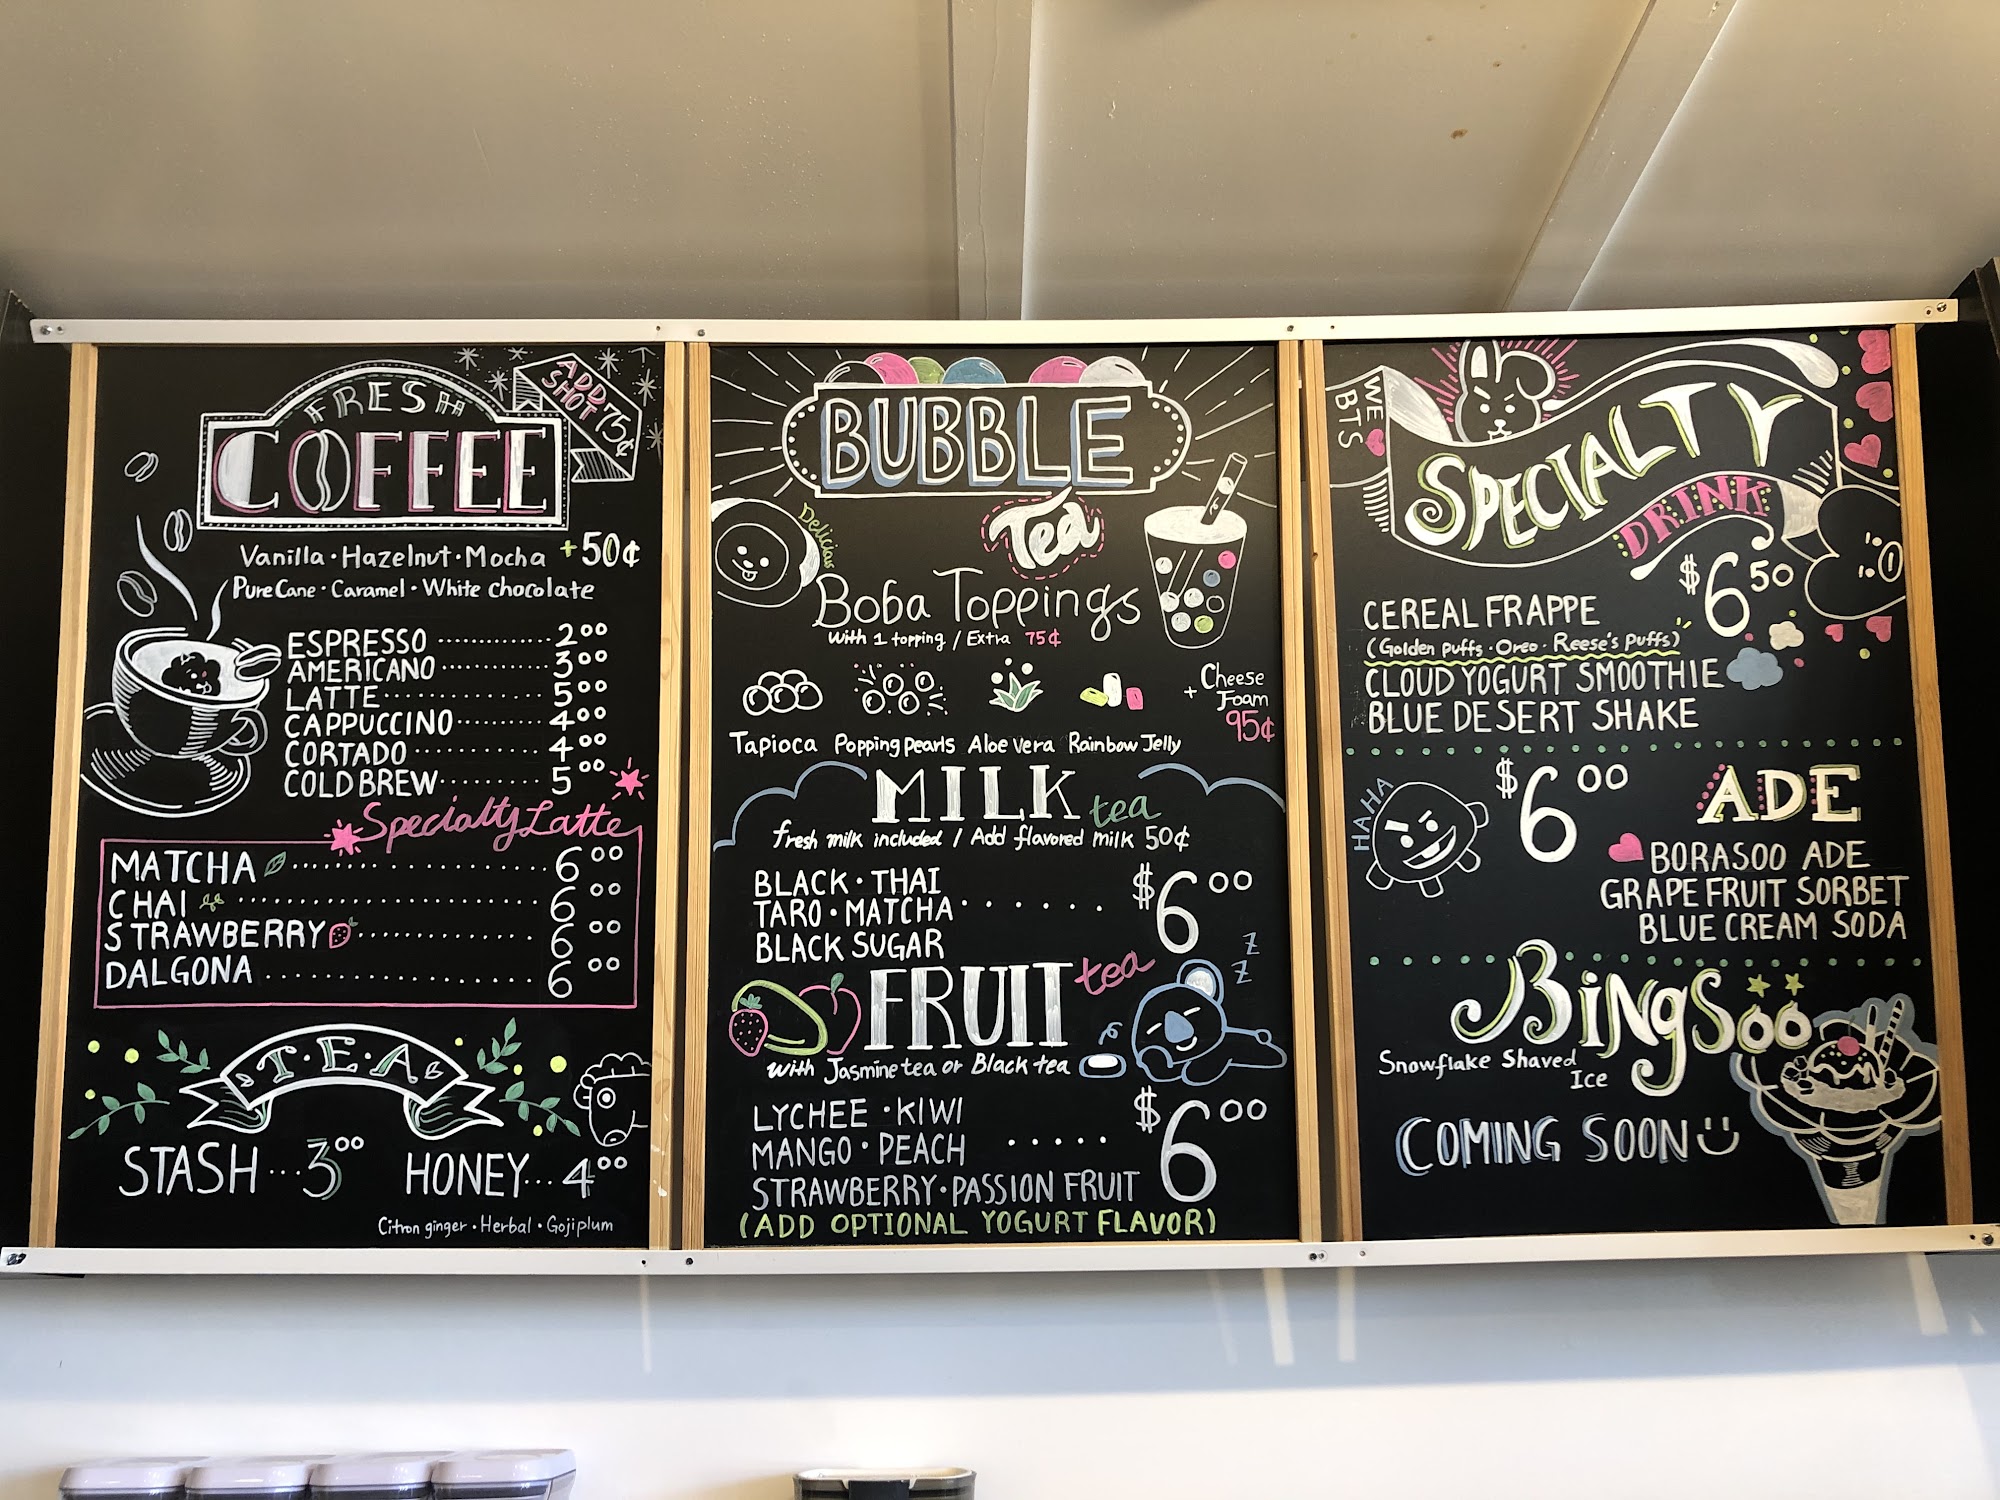 FRESH
COFFEE
ADD
SHOT 75¢
Vanilla · Hazelnut · Mocha +50¢
Pure Cane · Caramel · White chocolate
ESPRESSO 2.00
AMERICANO 3.00
LATTE 5.00
CAPPUCCINO 4.00
CORTADO 4.00
COLD BREW 5.00
Specialty Latte
MATCHA 6.00
CHAI 6.00
STRAWBERRY 6.00
DALGONA 6.00
T·E·A
STASH ... 3.00 HONEY ... 4.00
Citron ginger · Herbal · Gojiplum
BUBBLE
Tea
Delicias
Boba Toppings
with 1 topping / Extra 75¢
+ Cheese
Foam
95¢
Tapioca Popping pearls Aloe vera Rainbow Jelly
MILK tea
fresh milk included / Add flavored milk 50¢
BLACK · THAI
TARO · MATCHA ...... $6.00
BLACK SUGAR
Z
Z
FRUIT tea
with Jasmine tea or Black tea
LYCHEE · KIWI
MANGO · PEACH ..... $6.00
STRAWBERRY · PASSION FRUIT
(ADD OPTIONAL YOGURT FLAVOR)
WE
BTS
SPECIALTY
DRINK
$6.50
CEREAL FRAPPE
(Golden puffs · Oreo · Reese's puffs)
CLOUD YOGURT SMOOTHIE
BLUE DESERT SHAKE
HAHA
$6.00 ADE
BORASOO ADE
GRAPEFRUIT SORBET
BLUE CREAM SODA
BiNgSoo
Snowflake Shaved
Ice
COMING SOON